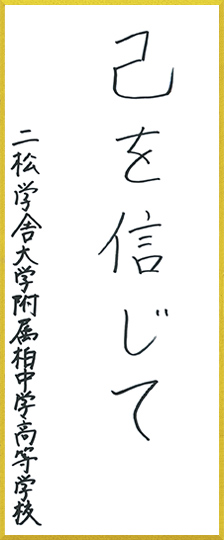 己を信じて
二松学舎大学附属柏中学高等学校